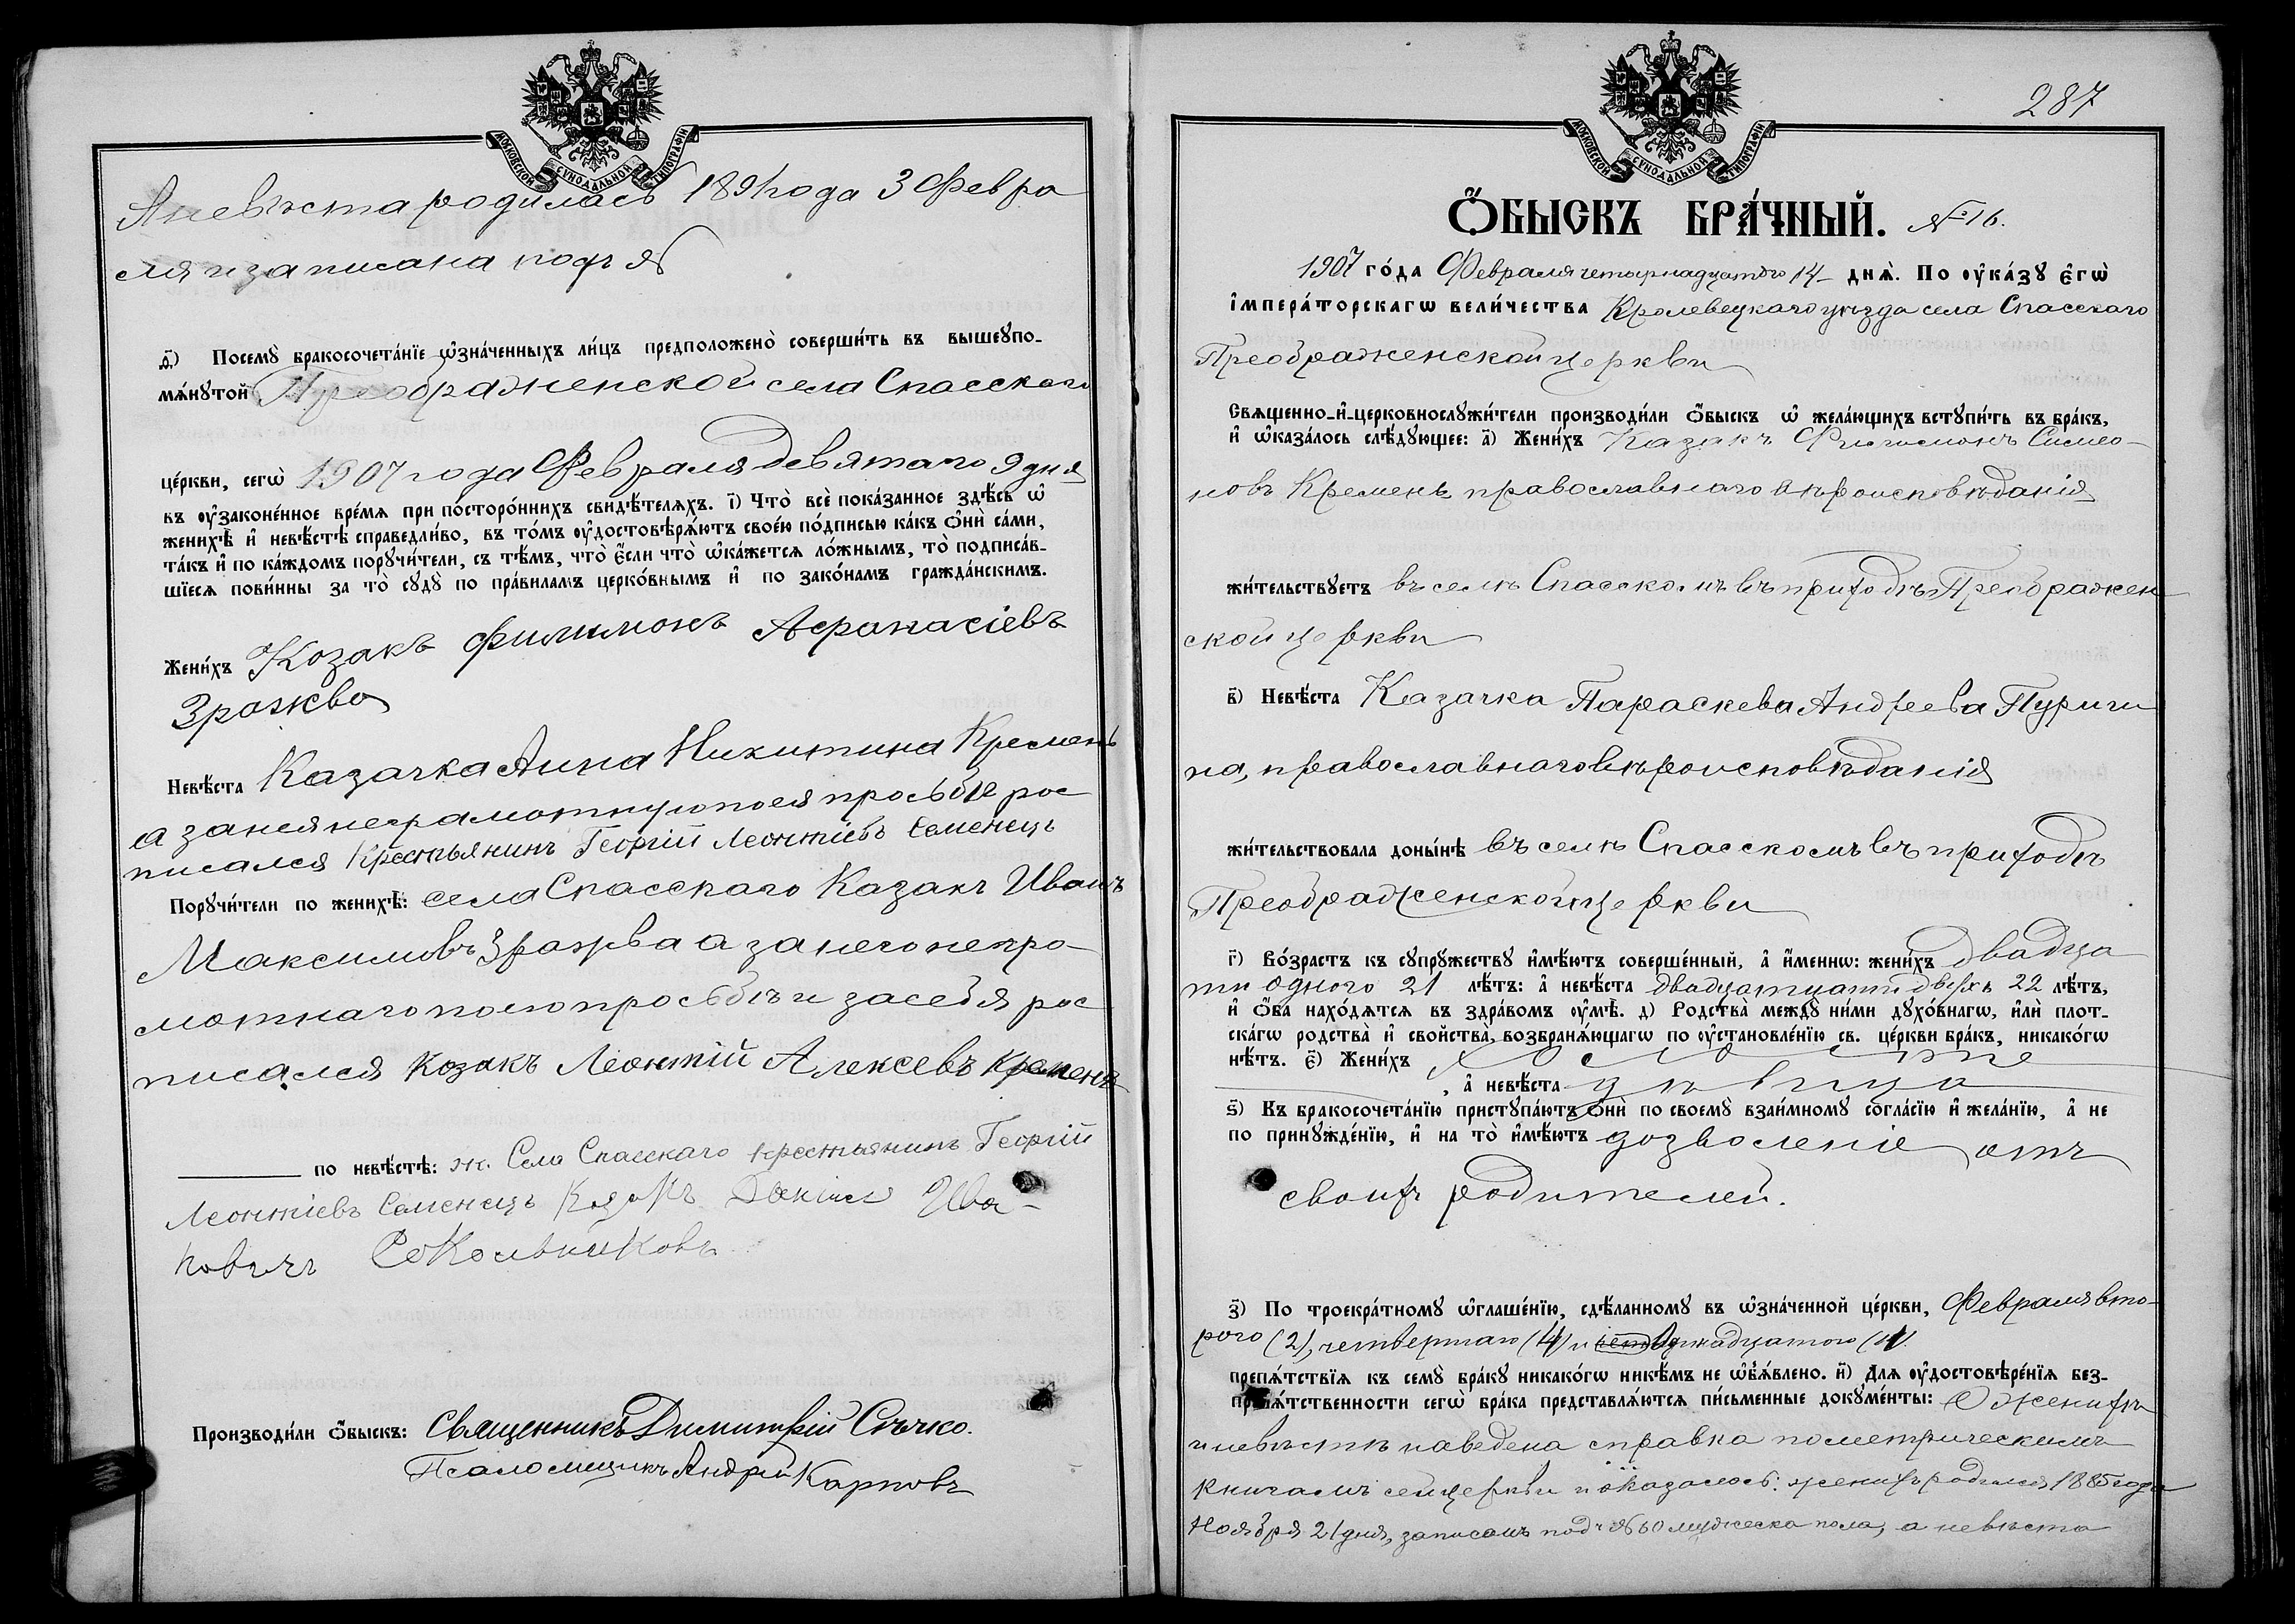 МОСКОВСКОЙ СѴНОДАЛЬНОЙ ТИПОГРАФІИ
А невѣста родилась 1891 года 3 Февра
ля и записана подъ №
ѳ҃) Посемꙋ̀ бракосочета́нїе ѡ҆зна́ченныхъ ли́цъ предположено̀ соверши́ть въ вышеꙋпо-
мѧ́нꙋтой Преображенской села Спасского
це́ркви, сегѡ̀ 1907 года Февраля девятаго 9 дня
въ оу҆законе́нное вре́мѧ при посторо́ннихъ свидѣ́телѧхъ. і҃) Что̀ всѐ пока́занное здѣ́сь ѡ҆
женихѣ̀ и҆ невѣ́стѣ справедли́во, въ то́мъ оу҆достовѣрѧ́ютъ свое́ю по́дписью ка́къ ѻ҆нѝ са́ми,
та́къ и҆ по ка́ждомъ порꙋчи́тели, съ тѣ́мъ, что̀ є҆́сли что̀ ѡ҆ка́жетсѧ ло́жнымъ, то̀ подписа́в-
шїесѧ пови́нны за то̀ сꙋдꙋ̀ по пра́виламъ церко́внымъ и҆ по зако́намъ гражда́нскимъ.
Жени́хъ Козакъ Филимонъ Афонасіевъ
Зражва
Невѣ́ста Казачка Анна Никитина Кремень
а за нея неграмотную по ея просьбѣ рос
писался Крестьянинъ Георгій Леонтіевъ Семенецъ
Порꙋчи́тели по женихѣ̀: села Спасскаго Казакъ Иванъ
Максимовъ Зражва а за него негра-
мотнаго по его просьбѣ и за себя рос
писался Козакъ Леонтій Алексевъ Кремень
по невѣ́стѣ: Села Спасскаго крестьянинъ Георгій
Леонтіевъ Семенецъ Ива-
новичъ Сокольниковъ
Производи́ли ѻ҆́быскъ: Священникъ Димитрій Сѣчко.
Псаломщикъ Андрей Карповъ
287
МОСКОВСКОЙ СѴНОДАЛЬНОЙ ТИПОГРАФІИ
Ѻ҆́БЫСКЪ БРА́ЧНЫЙ. № 16.
1907 го́да Февраля четырнадцатого 14 днѧ̀. По оу҆ка́зꙋ є҆гѡ̀
і҆мпера́торскагѡ вели́чества Кролевецкаго уѣзда села Спасскаго
Преображенской церкви
Свѧщенно-и҆-церковнослꙋжи́тели производи́ли ѻ҆́быскъ ѡ҆ жела́ющихъ встꙋпи́ть въ бра́къ,
и҆ ѡ҆каза́лось слѣ́дꙋющее: а҃) Жени́хъ Казакъ Филимонъ Симео-
новъ Кремень православнаго вѣроисповѣданія
жи́тельствꙋетъ въ селѣ Спасскомъ въ приходѣ Преображен
ской церкви
в҃) Невѣ́ста Казачка Параскева Андреева Пуриги
на, православнаго вѣроисповѣданія
жи́тельствовала доны́нѣ въ селѣ Спасскомъ въ приходѣ
Преображенской церкви
г҃) Во́зрастъ къ сꙋпрꙋ́жествꙋ и҆мѣ́ютъ соверше́нный, а҆ и҆́меннѡ: жени́хъ двадца
ти одного 21 лѣ́тъ: а҆ невѣ́ста двадцати двухъ 22 лѣ́тъ,
и҆ ѻ҆́ба нахо́дѧтсѧ въ здра́вомъ оу҆мѣ̀. д҃) Родства̀ междꙋ̀ ни́ми дꙋхо́внагѡ, и҆лѝ плот-
ска́гѡ родства̀ и҆ сво́йства̀, возбранѧ́ющагѡ по оу҆становле́нїю св. це́ркви бра́къ, никако́гѡ
нѣ́тъ. є҃) Жени́хъ холостъ
, а҆ невѣ́ста дѣвица
ѕ҃) Къ бракосочета́нїю пристꙋпа́ютъ ѻ҆нѝ по своемꙋ̀ взаи́мномꙋ согла́сїю и҆ жела́нїю, а҆ не
по принꙋжде́нїю, и҆ на то̀ и҆мѣ́ютъ дозволеніе отъ
своихъ родителей.
з҃) По троекра́тномꙋ ѡ҆глаше́нїю, сдѣ́ланномꙋ въ ѡ҆зна́ченной це́ркви, Февраля вто-
рого (2), четвертаго (4) и одинадцатого (11)
препѧ́тствїѧ къ семꙋ̀ бра́кꙋ никако́гѡ никѣ́мъ не ѡ҆б̾ѧ́влено. и҃) Длѧ оу҆достовѣре́нїѧ без-
препѧ́тственности сегѡ̀ бра́ка представлѧ́ютсѧ пи́сьменные докꙋме́нты: О женихѣ
и невѣстѣ наведена справка по метрическимъ
книгамъ сей церкви и оказалось: женихъ родился 1885 года
Ноября 21 дня, записанъ подъ № 60 мужеска пола, а невѣста